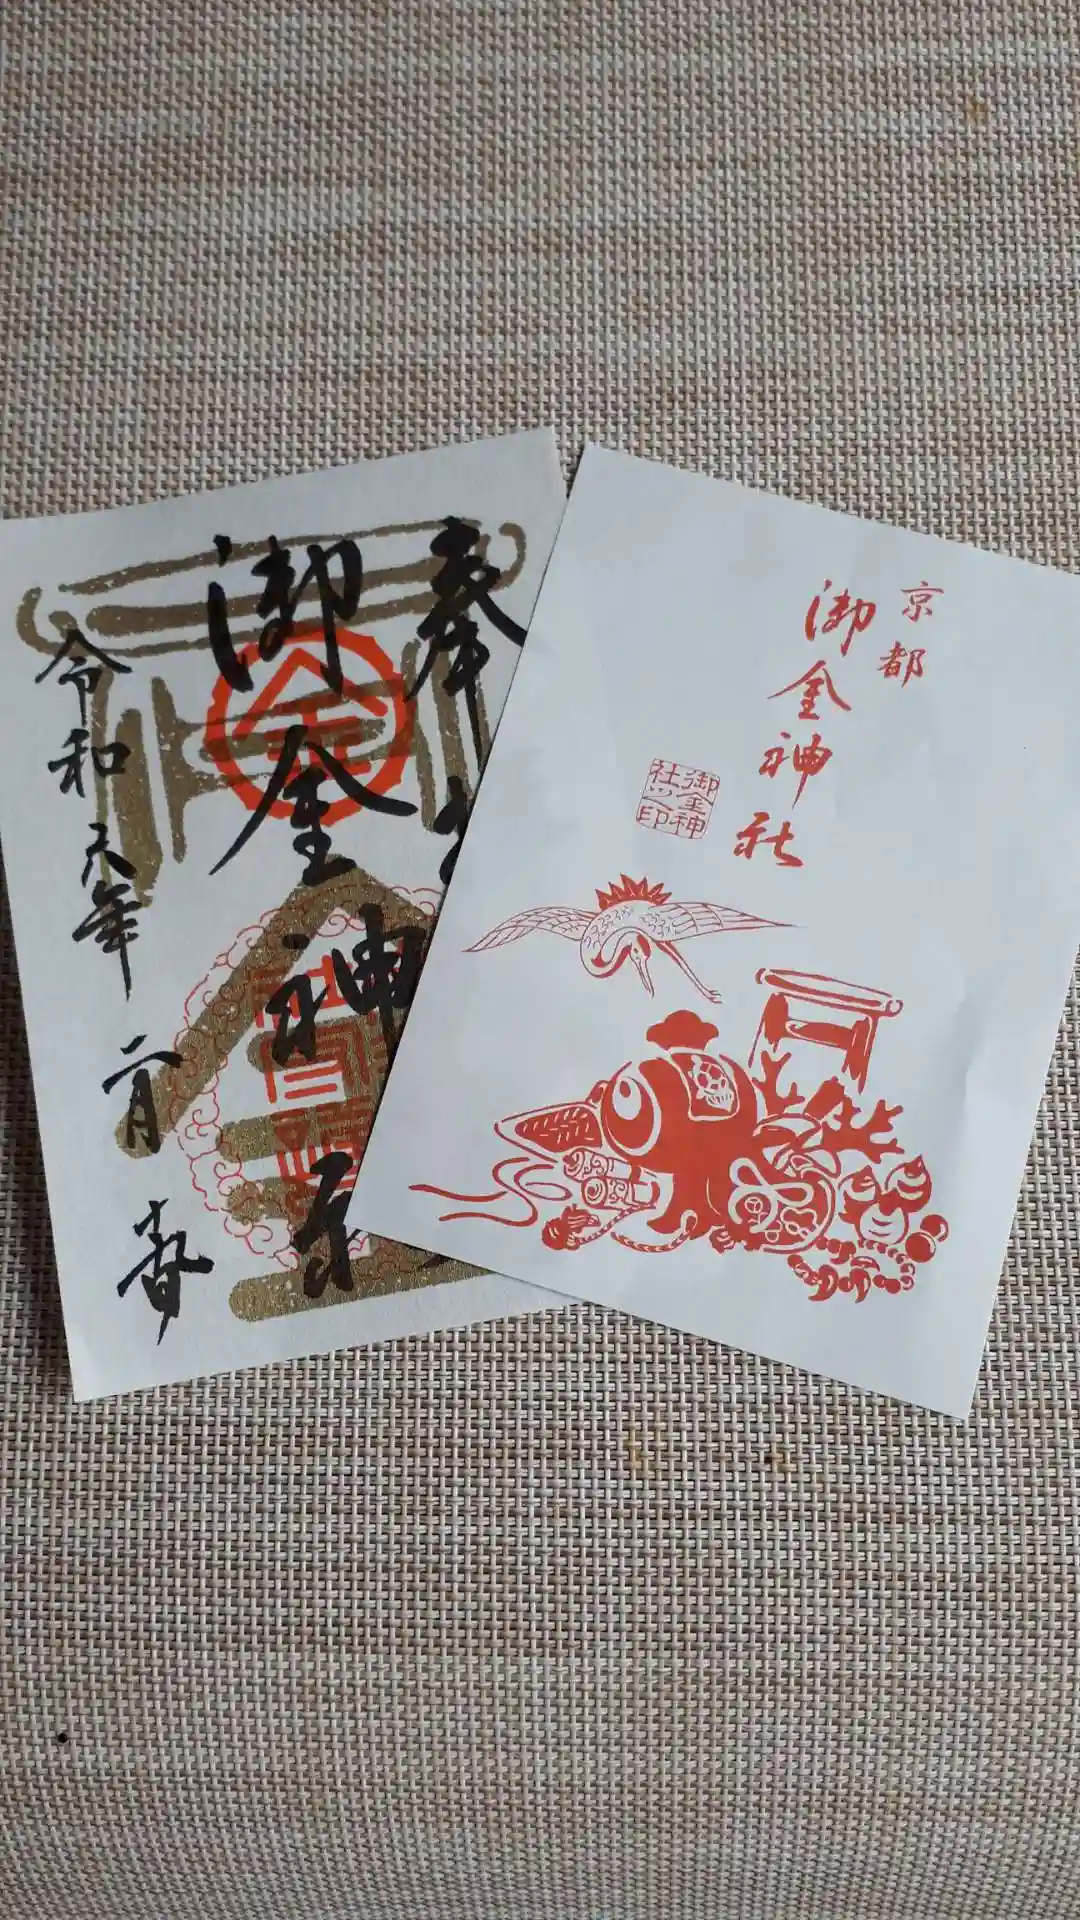 奉
御金神
令和元年 二月 壱
金
京都
御金神社
御金神
社之印